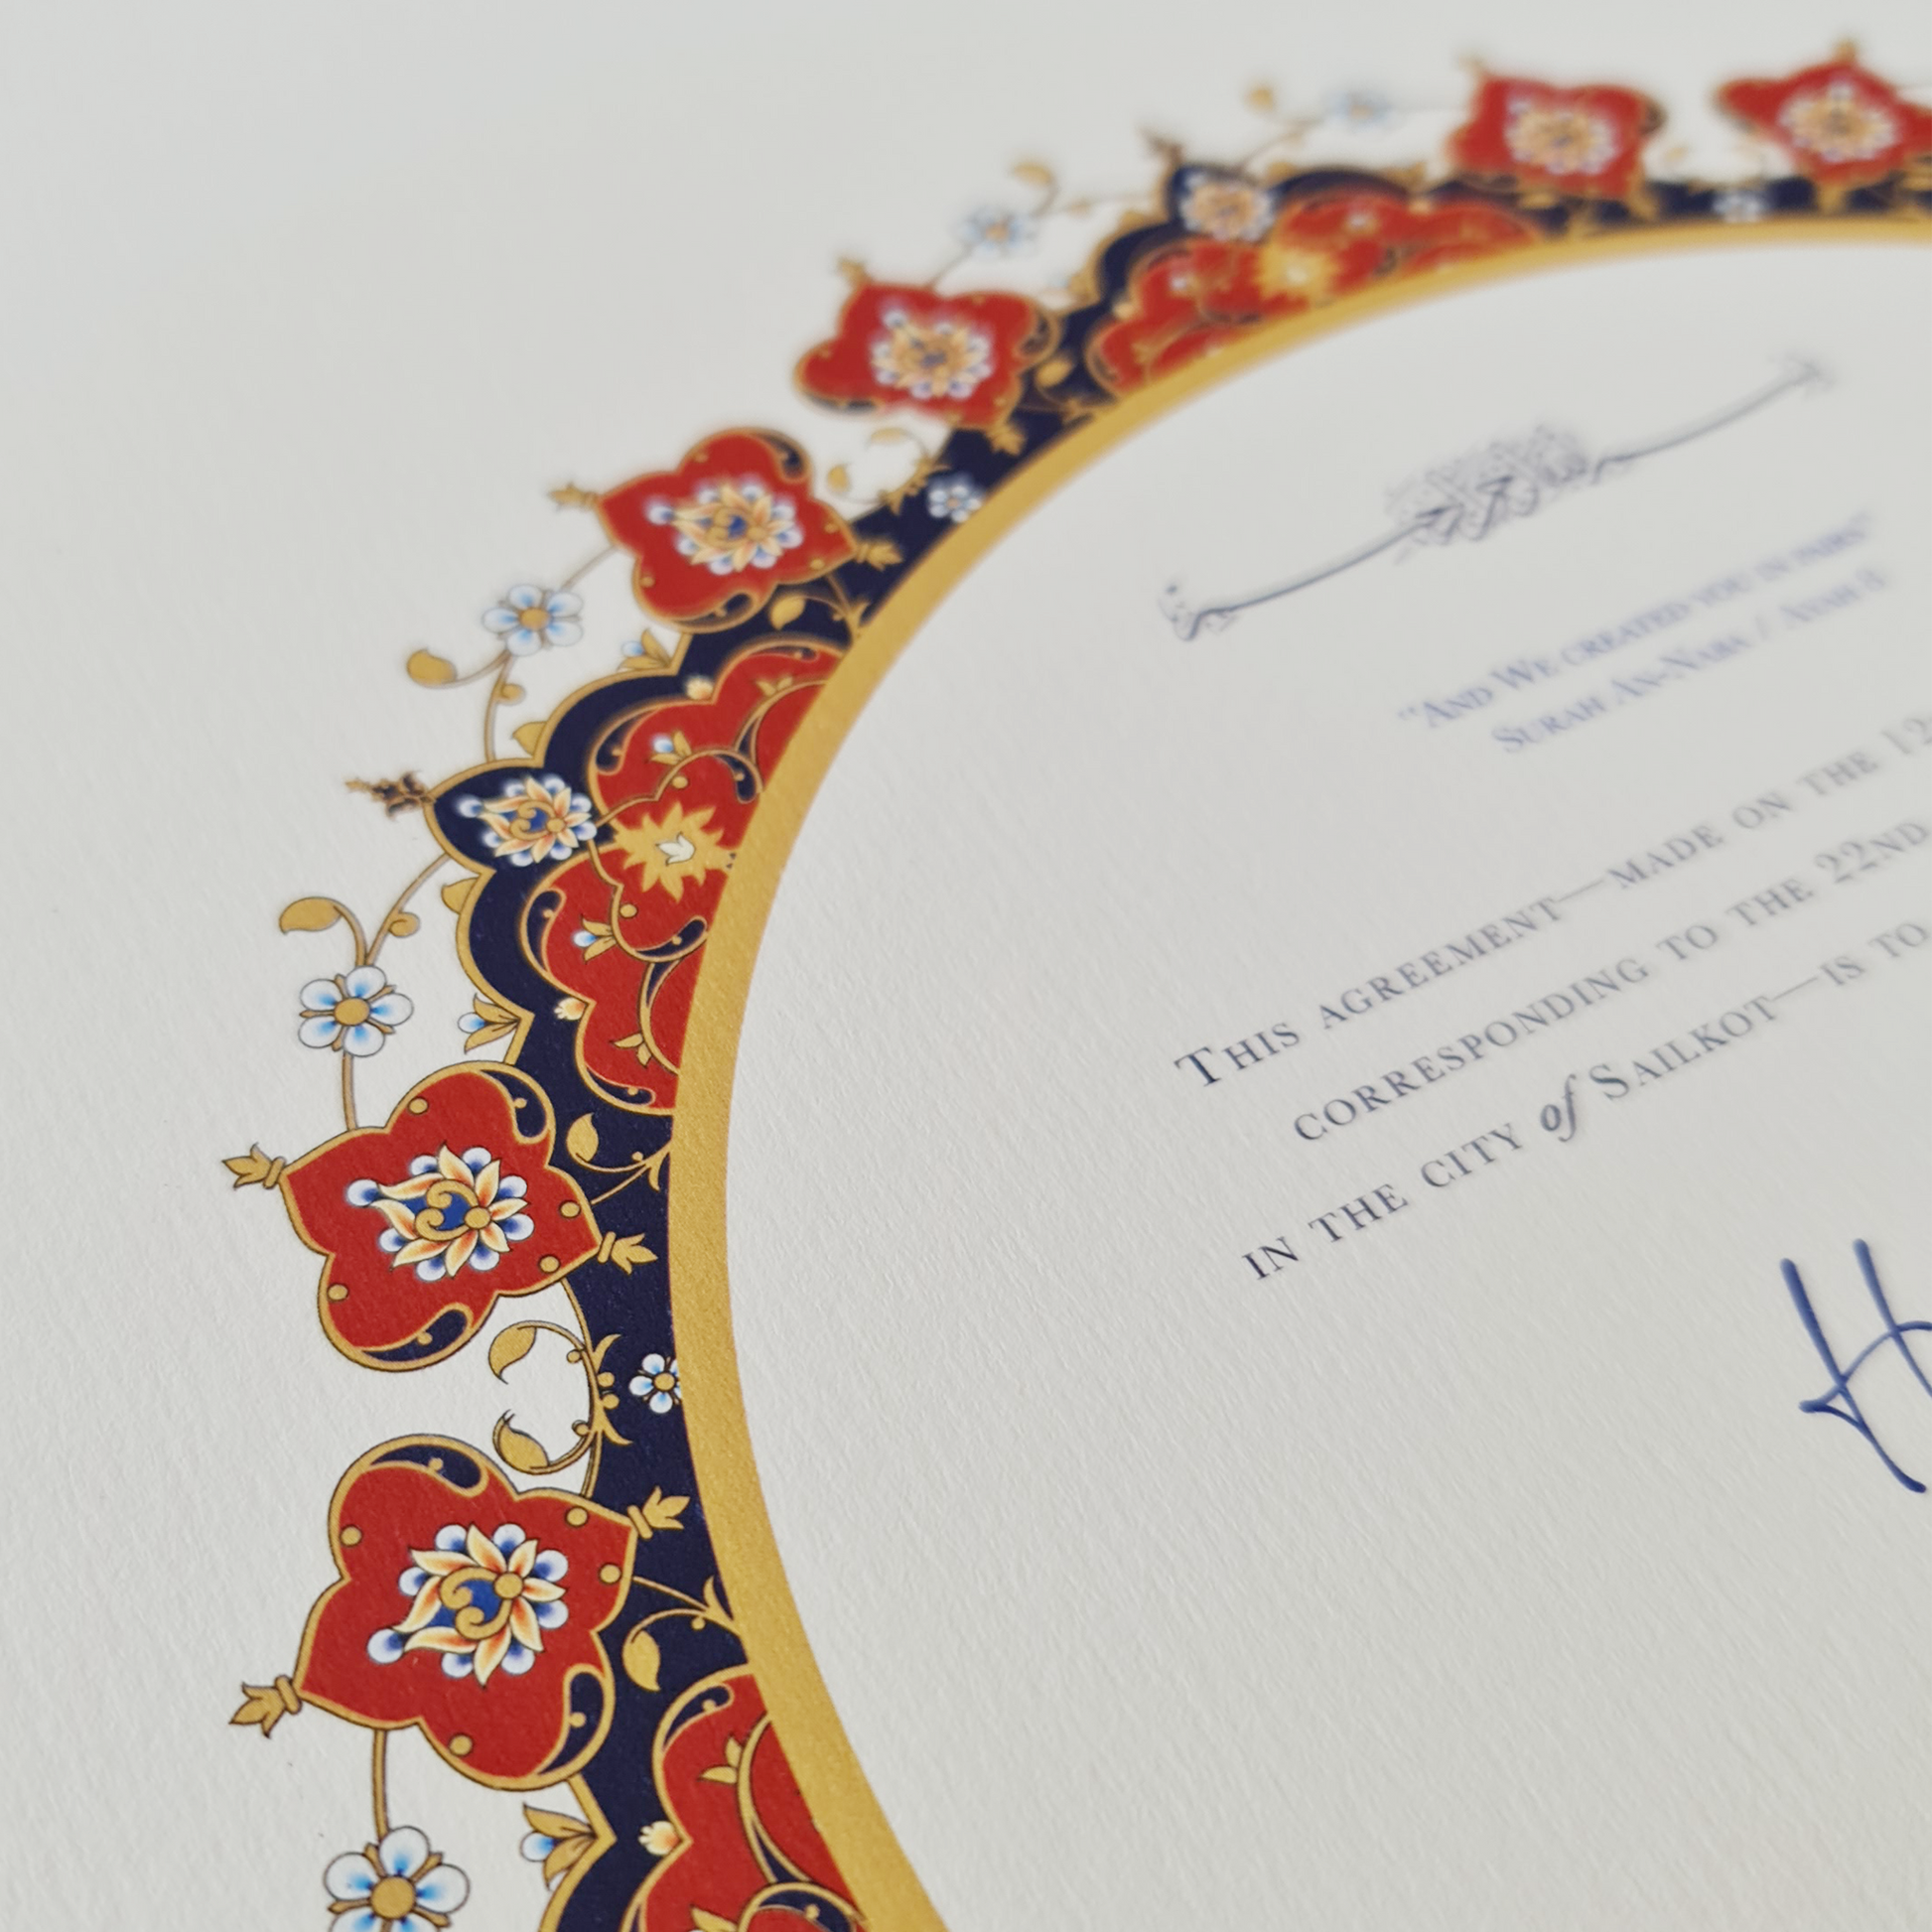 “And We created you in pairs”
Surah An-Naba / Ayah 8
This agreement—made on the 12
corresponding to the 22nd
in the city of Sailkot—is to
H